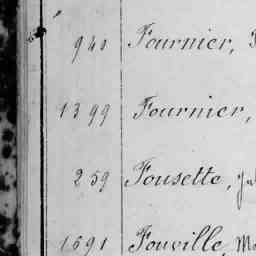 940 Fournier,
1399 Fournier,
259 Fousette,
1691 Fouville,